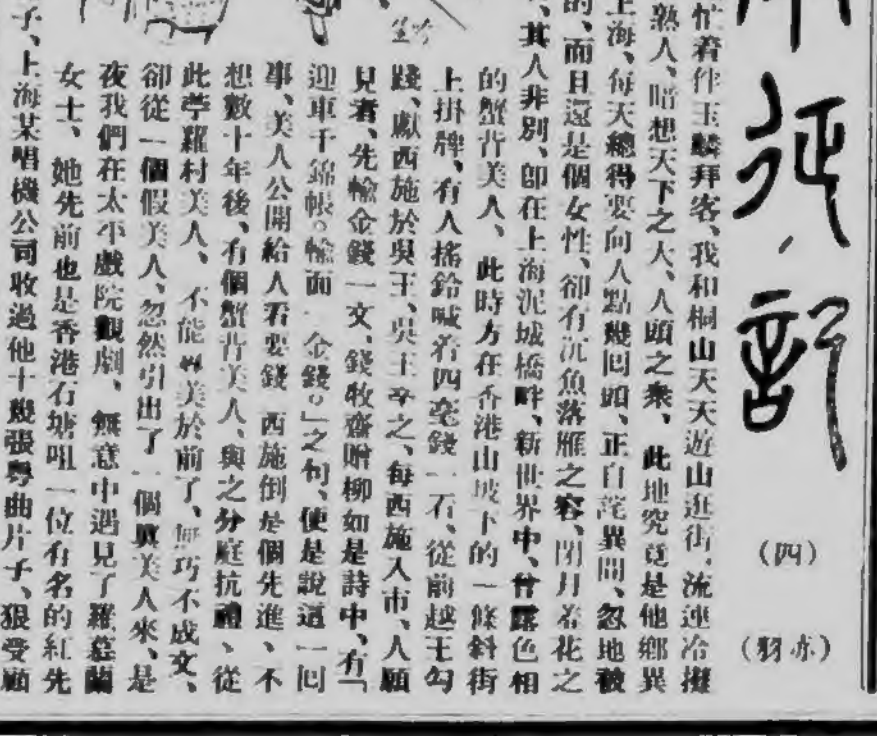 征記
(四)
(亦羽)
忙着伴玉麟拜客、我和桐山天天遊山逛街、流連冷攤
熟人、暗想天下之大、人頭之衆、此地究竟是他鄉異
上海、每天總得要向人點幾回頭、正自詫異間、忽地被
的、而且還是個女性、卻有沉魚落雁之容、閉月羞花之
、其人非別、卽在上海泥城橋畔、新世界中、曾露色相
的蟹背美人、此時方在香港山坡下的一條斜街
上掛牌、有人搖鈴喊着四毫錢一看、從前越王勾
踐、獻西施於吳王、吳王幸之、每西施入市、人願
見者、先輸金錢一文、錢牧齋贈柳如是詩中、有「
迎車千錦帳。輸面一金錢。」之句、便是說這一回
事、美人公開給人看要錢 西施倒是個先進、不
想數十年後、有個蟹背美人、與之分庭抗禮、從
此苧羅村美人、不能專美於前了、無巧不成文、
卻從一個假美人、忽然引出了一個眞美人來、是
夜我們在太平戲院觀劇、無意中遇見了羅慕蘭
女士、她先前也是香港石塘咀一位有名的紅先
子、上海某唱機公司收過他十幾張粤曲片子、狠受顧